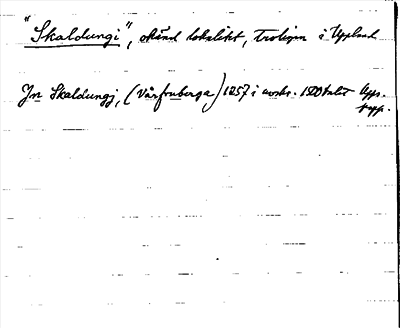 "Skaldungi", okänd lokalitet, troligen i Uppland
Jn Skaldungj, (Vårfruberga) 1257 i avskr. 1500talet Upps.
papp.